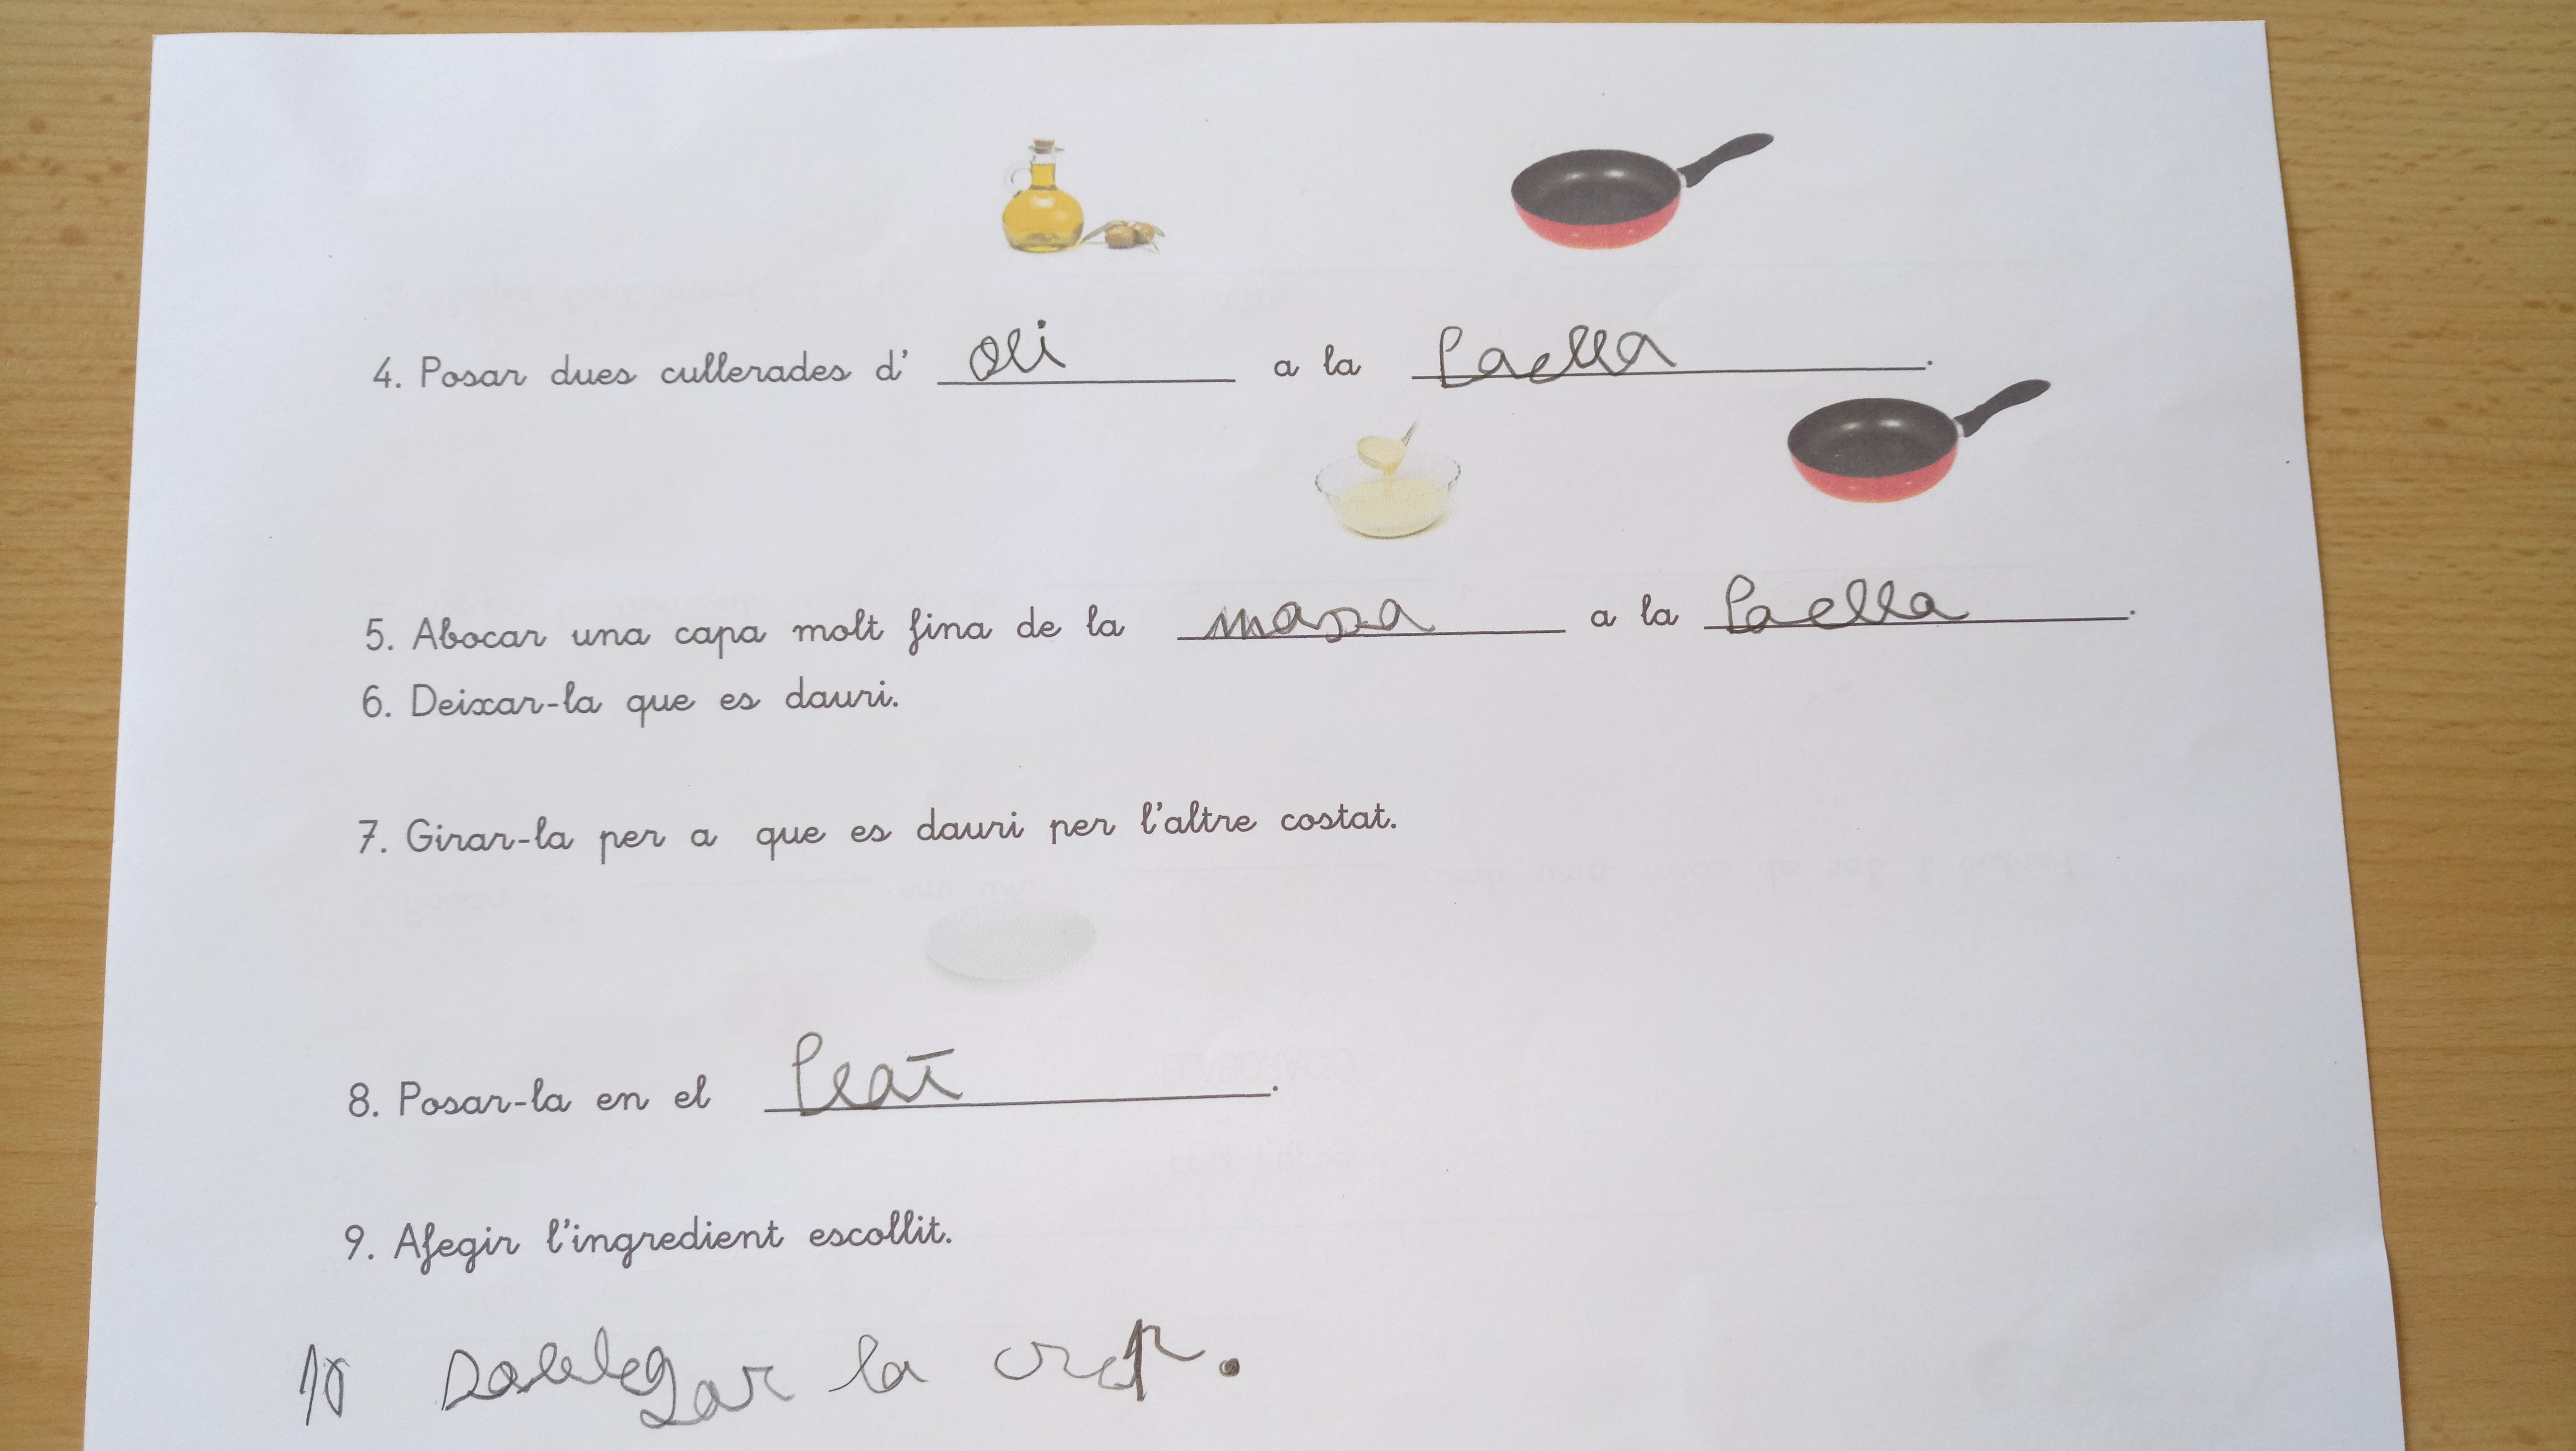 4. Posar dues cullerades d' oli a la Paella.
5. Abocar una capa molt fina de la massa a la Paella.
6. Deixar-la que es dauri.
7. Girar-la per a que es dauri per l'altre costat.
8. Posar-la en el Plat.
9. Afegir l'ingredient escollit.
10 la crep.